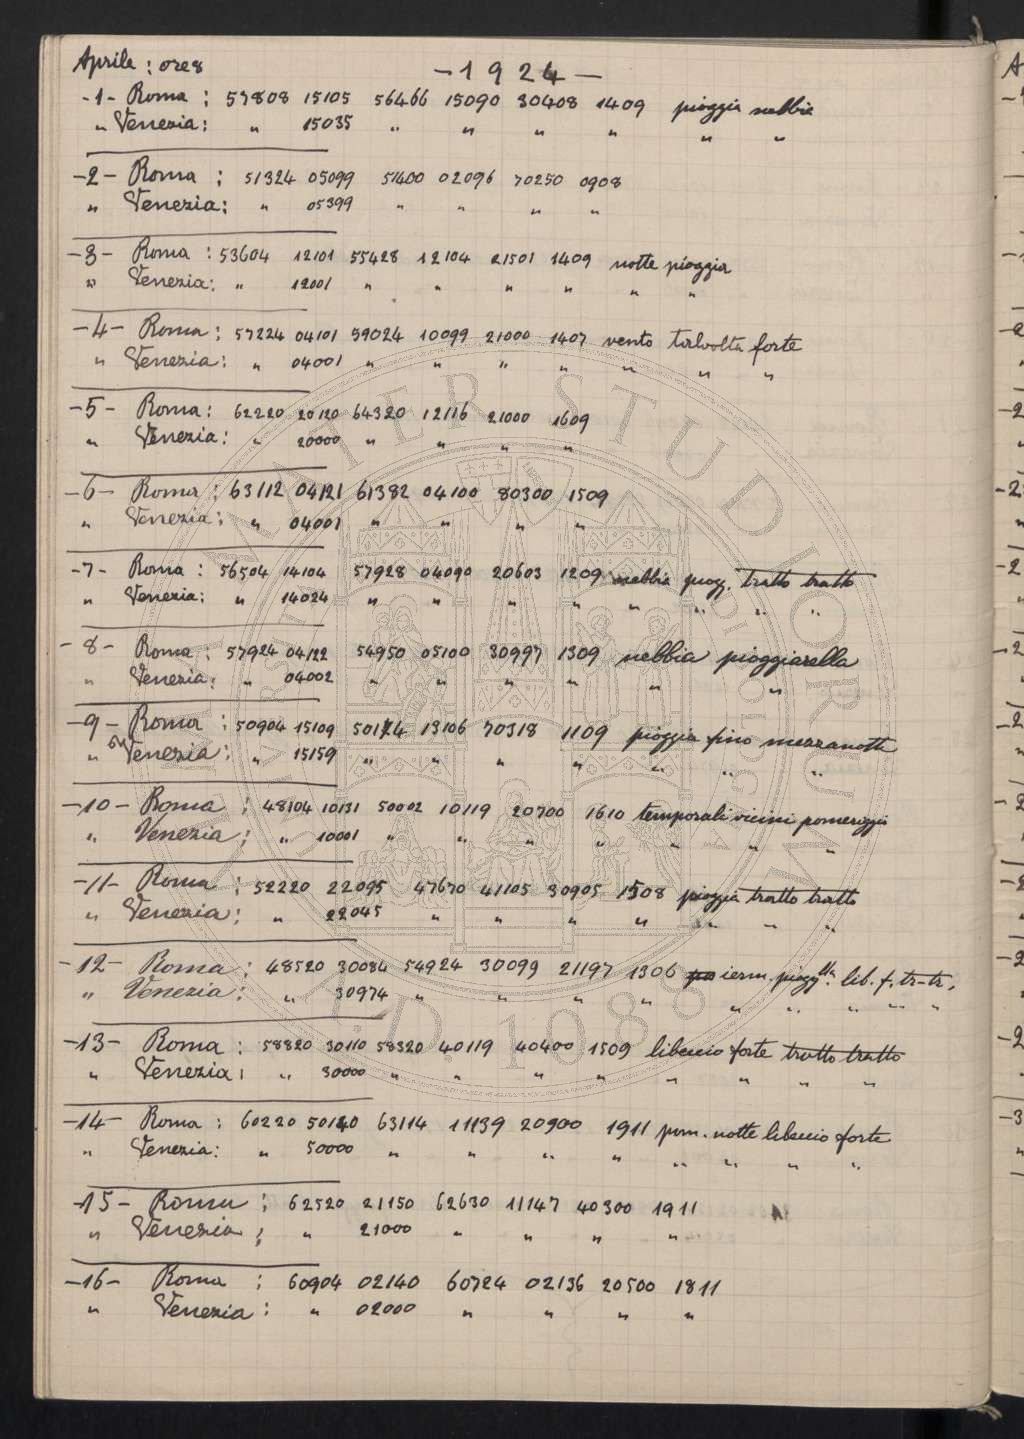 Aprile : ore 8
- 1 9 2 4 -
-1- Roma : 57808 15105 56466 15090 30408 1409 pioggia nebbia
" Venezia : " 15035 " " " " " "
-2- Roma : 51324 05099 51400 02096 70250 0908
" Venezia : " 05399 " " " "
-3- Roma : 53604 12101 55428 12104 21501 1409 notte pioggia
" Venezia : " 12001 " " " " " "
-4- Roma : 57224 04101 59024 10099 21000 1407 vento talvolta forte
" Venezia : " 04001 " " " " " " "
-5- Roma : 62220 20120 64320 12116 21000 1609
" Venezia : " 20000 " " " "
-6- Roma : 63112 04121 61382 04100 80300 1509
" Venezia : " 04001 " " " "
-7- Roma : 56504 14104 57928 04090 20603 1209 nebbia piogg. tratto tratto
" Venezia : " 14024 " " " " " " " "
-8- Roma : 57924 04122 54950 05100 30997 1309 nebbia pioggiarella
" Venezia : " 04002 " " " " " "
-9- Roma : 50904 15109 50124 13106 70318 1109 pioggia fino mezzanotte
" Venezia : " 15159 " " " " " " "
-10- Roma : 48104 10131 50002 10119 20700 1610 temporali vicini pomeriggio
" Venezia : " 10001 " " " " " " "
-11- Roma : 52220 22095 47670 41105 30905 1508 pioggia tratto tratto
" Venezia : " 22045 " " " " " " "
-12- Roma : 48520 30084 54924 30099 21197 1306 ierm. piogglla. lib. f. tr-tr.
" Venezia : " 30974 " " " " " " " " "
-13- Roma : 58820 30110 58320 40119 40400 1509 libeccio forte tratto tratto
" Venezia : " 30000 " " " " " " " "
-14- Roma : 60220 50120 63114 11139 20900 1911 pom. notte libeccio forte
" Venezia : " 50000 " " " " " " " "
-15- Roma : 62520 21150 62630 11147 40300 1911
" Venezia : " 21000 " " " "
-16- Roma : 60904 02140 60724 02136 20500 1811
" Venezia : " 02000 " " " "
ALMA MATER STUDIORUM
A.D. 1088